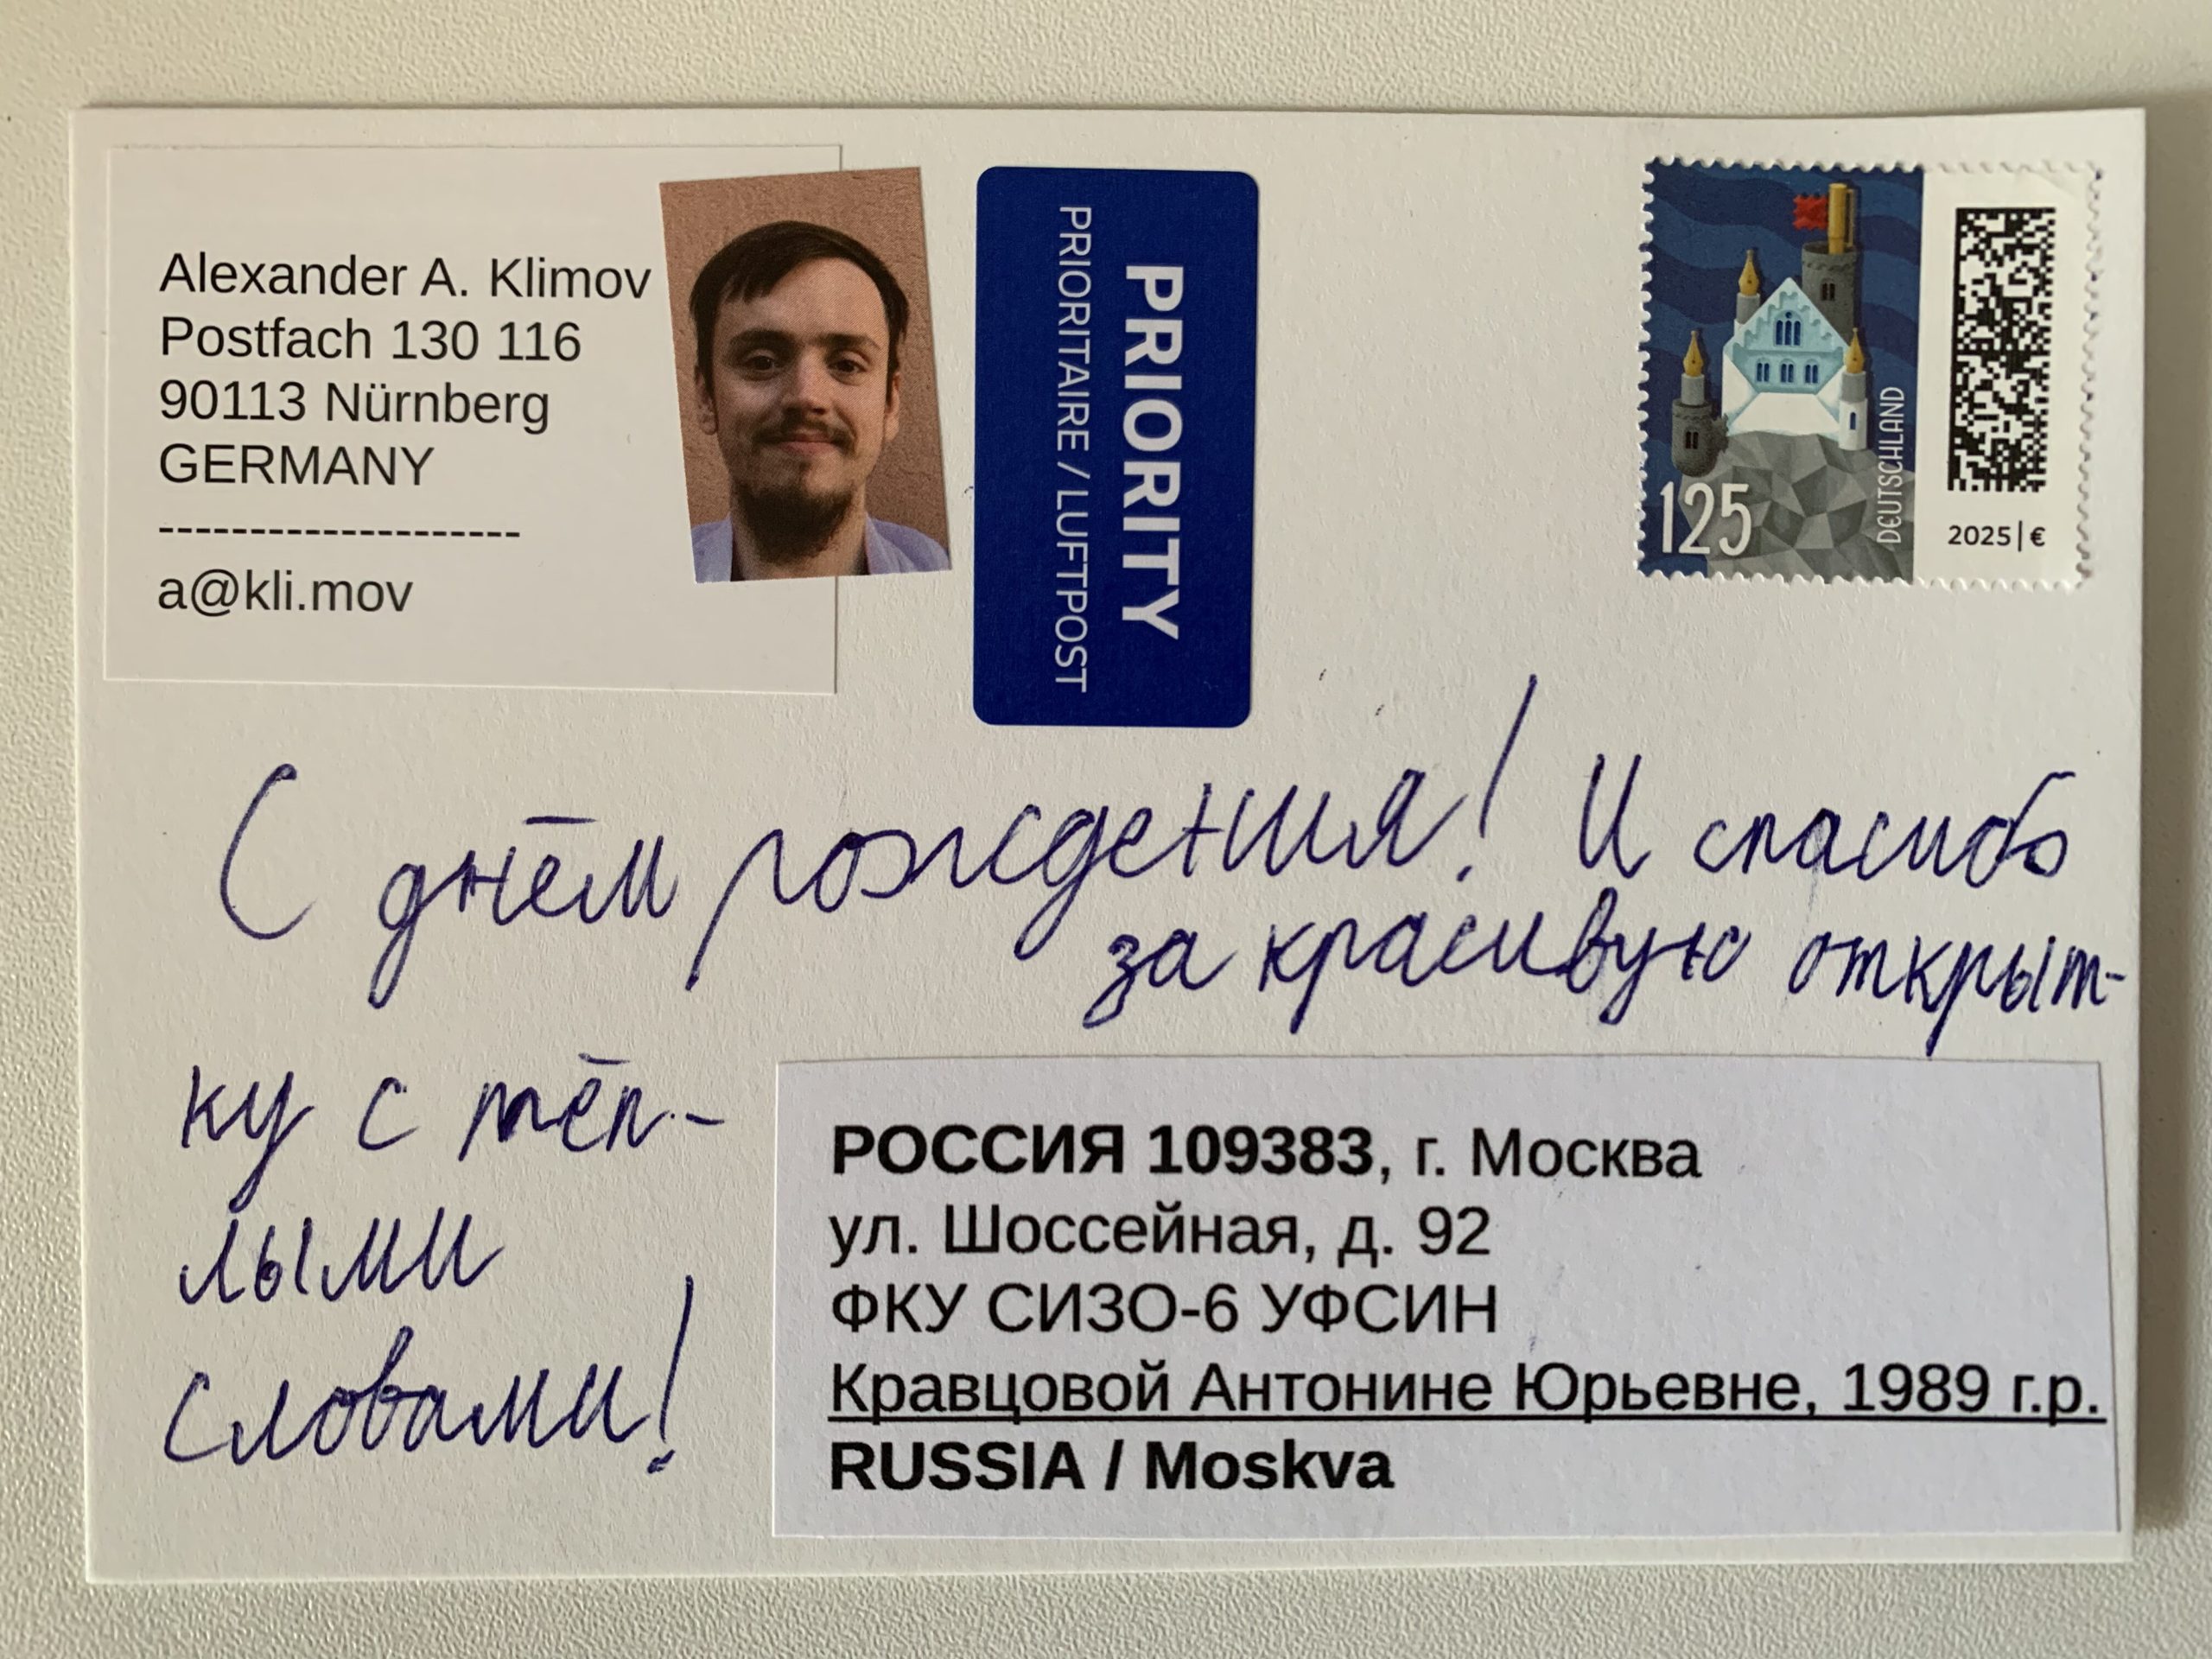 Alexander A. Klimov
Postfach 130 116
90113 Nürnberg
GERMANY
--------------------
a@kli.mov
PRIORITY
PRIORITAIRE / LUFTPOST
125
DEUTSCHLAND
2025|€
С днём рождения! И спасибо
за красивую открыт-
ку с тёп-
лыми
словами!
РОССИЯ 109383, г. Москва
ул. Шоссейная, д. 92
ФКУ СИЗО-6 УФСИН
Кравцовой Антонине Юрьевне, 1989 г.р.
RUSSIA / Moskva